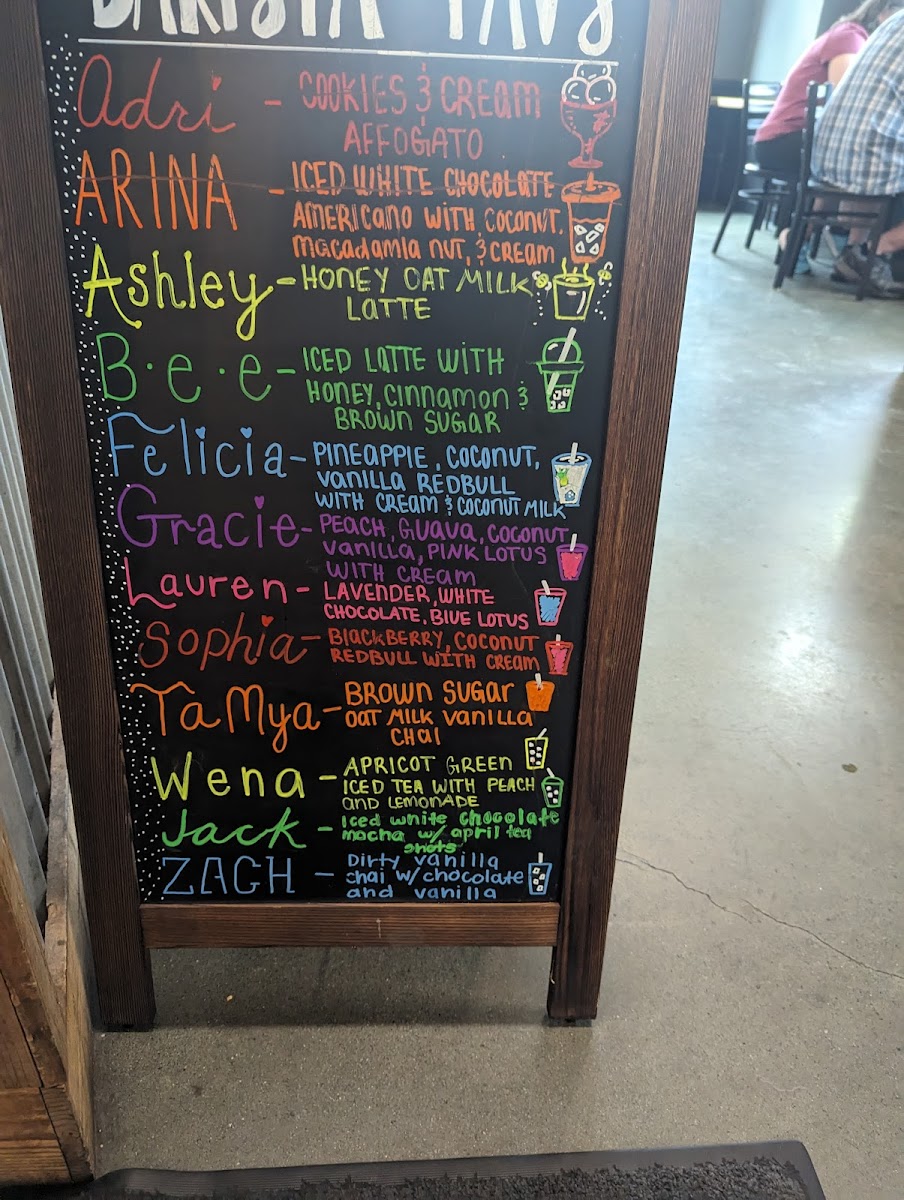 BARISTA FAVS
Adri - COOKIES & CREAM
AFFOGATO
ARINA - ICED WHITE CHOCOLATE
AMERICANO WITH COCONUT,
macadamia NUT, & CREAM
Ashley - HONEY OAT MILK
LATTE
B·e·e - ICED LATTE WITH
HONEY, CINNAMON &
BROWN SUGAR
Felicia - PINEAPPLE, COCONUT,
vanilla REDBULL
WITH CREAM & COCONUT MILK
Gracie - PEACH, GUAVA, COCONUT
vanilla, PINK LOTUS
WITH CREAM
Lauren - LAVENDER, WHITE
CHOCOLATE, BLUE LOTUS
Sophia - BLACKBERRY, COCONUT
REDBULL WITH CREAM
TaMya - BROWN SUGAR
OAT MILK VANILLA
CHAI
Wena - APRICOT GREEN
ICED TEA WITH PEACH
AND LEMONADE
Jack - Iced white chocolate
mocha w/ april tea
shots
ZACH - Dirty vanilla
chai w/ chocolate
and vanilla